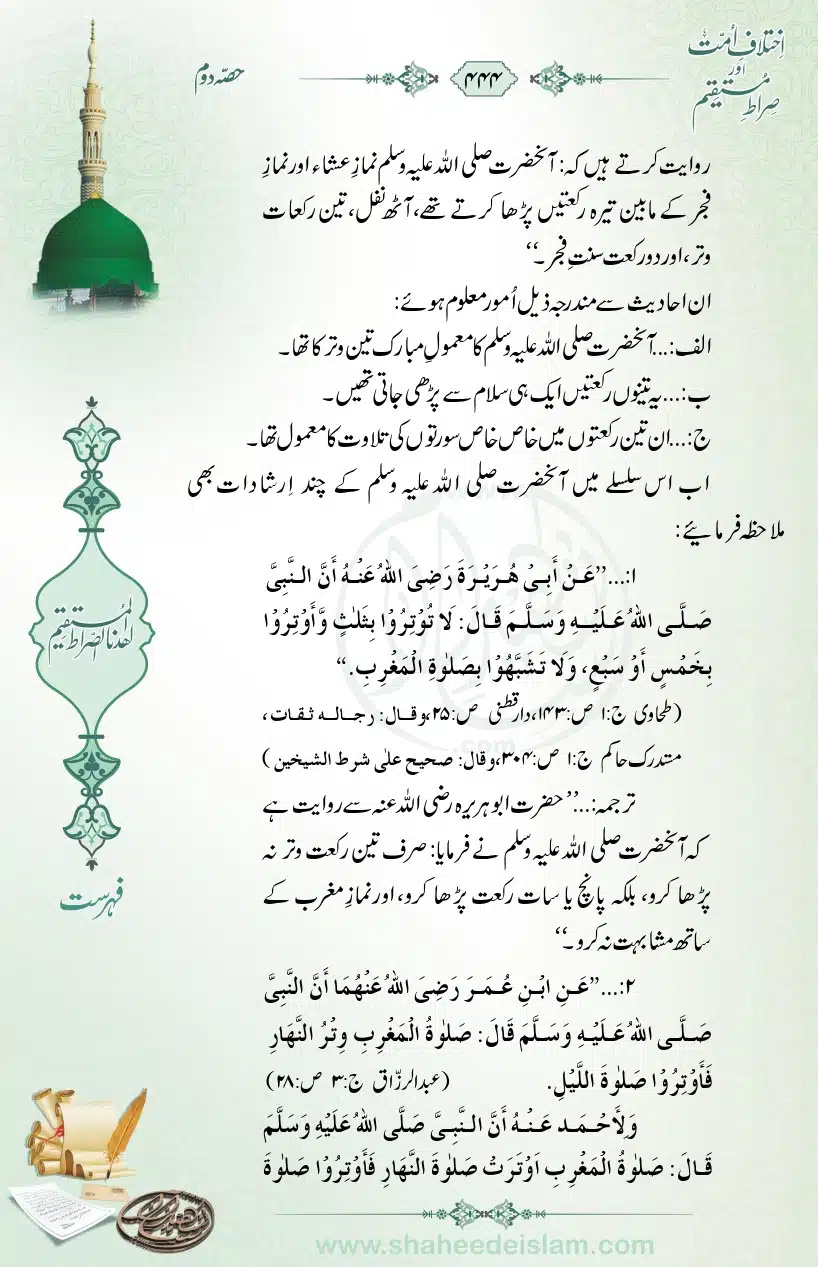 اِختلافِ اُمّت
اور
صِراطِ مُستقیم
۴۴۴
حصّہ دوم
روایت کرتے ہیں کہ: آنحضرت صلی اللہ علیہ وسلم نمازِ عشاء اور نمازِ
فجر کے مابین تیرہ رکعتیں پڑھا کرتے تھے، آٹھ نفل، تین رکعات
وتر، اور دو رکعت سنتِ فجر۔‘‘
ان احادیث سے مندرجہ ذیل اُمور معلوم ہوئے:
الف:...آنحضرت صلی اللہ علیہ وسلم کا معمولِ مبارک تین وتر کا تھا۔
ب:...یہ تینوں رکعتیں ایک ہی سلام سے پڑھی جاتی تھیں۔
ج:...ان تین رکعتوں میں خاص خاص سورتوں کی تلاوت کا معمول تھا۔
اب اس سلسلے میں آنحضرت صلی اللہ علیہ وسلم کے چند اِرشادات بھی
ملاحظہ فرمائیے:
۱:...’’عَنْ أَبِیْ هُرَیْرَةَ رَضِیَ اللهُ عَنْهُ أَنَّ النَّبِیَّ
صَلَّی اللهُ عَلَیْهِ وَسَلَّمَ قَالَ: لَا تُوْتِرُوْا بِثَلٰثٍ وَّأَوْتِرُوْا
بِخَمْسٍ أَوْ سَبْعٍ، وَلَا تَشَبَّهُوْا بِصَلٰوةِ الْمَغْرِبِ.‘‘
(طحاوی ج:۱ ص:۱۴۳، دارقطنی ص:۲۵، وقال: رجاله ثقات،
مستدرک حاکم ج:۱ ص:۳۰۴، وقال: صحیح علٰی شرط الشیخین)
ترجمہ:...’’حضرت ابوہریرہ رضی اللہ عنہ سے روایت ہے
کہ آنحضرت صلی اللہ علیہ وسلم نے فرمایا: صرف تین رکعت وتر نہ
پڑھا کرو، بلکہ پانچ یا سات رکعت پڑھا کرو، اور نمازِ مغرب کے
ساتھ مشابہت نہ کرو۔‘‘
۲:...’’عَنِ ابْنِ عُمَرَ رَضِیَ اللهُ عَنْهُمَا أَنَّ النَّبِیَّ
صَلَّی اللهُ عَلَیْهِ وَسَلَّمَ قَالَ: صَلٰوةُ الْمَغْرِبِ وِتْرُ النَّهَارِ
فَأَوْتِرُوْا صَلٰوةَ اللَّیْلِ. (عبدالرزّاق ج:۳ ص:۲۸)
وَلِأَحْمَد عَنْهُ أَنَّ النَّبِیَّ صَلَّی اللهُ عَلَیْهِ وَسَلَّمَ
قَالَ: صَلٰوةُ الْمَغْرِبِ اَوْتَرَتْ صَلٰوةَ النَّهَارِ فَأَوْتِرُوْا صَلٰوةَ
اهدنا الصراط المستقیم
فہرست
www.shaheedeislam.com